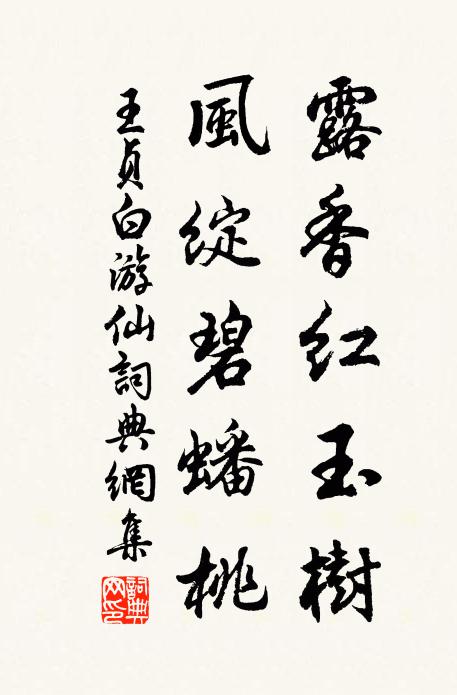 露香紅玉樹
風綻碧蟠桃
王貞白游仙詞典網集
詞典网印